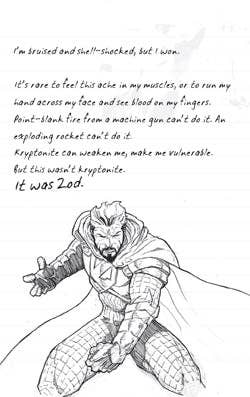 I'm bruised and shell-shocked, but I won.
It's rare to feel this ache in my muscles, or to run my
hand across my face and see blood on my fingers.
Point-blank fire from a machine gun can't do it. An
exploding rocket can't do it.
Kryptonite can weaken me, make me vulnerable.
But this wasn't kryptonite.
It was Zod.